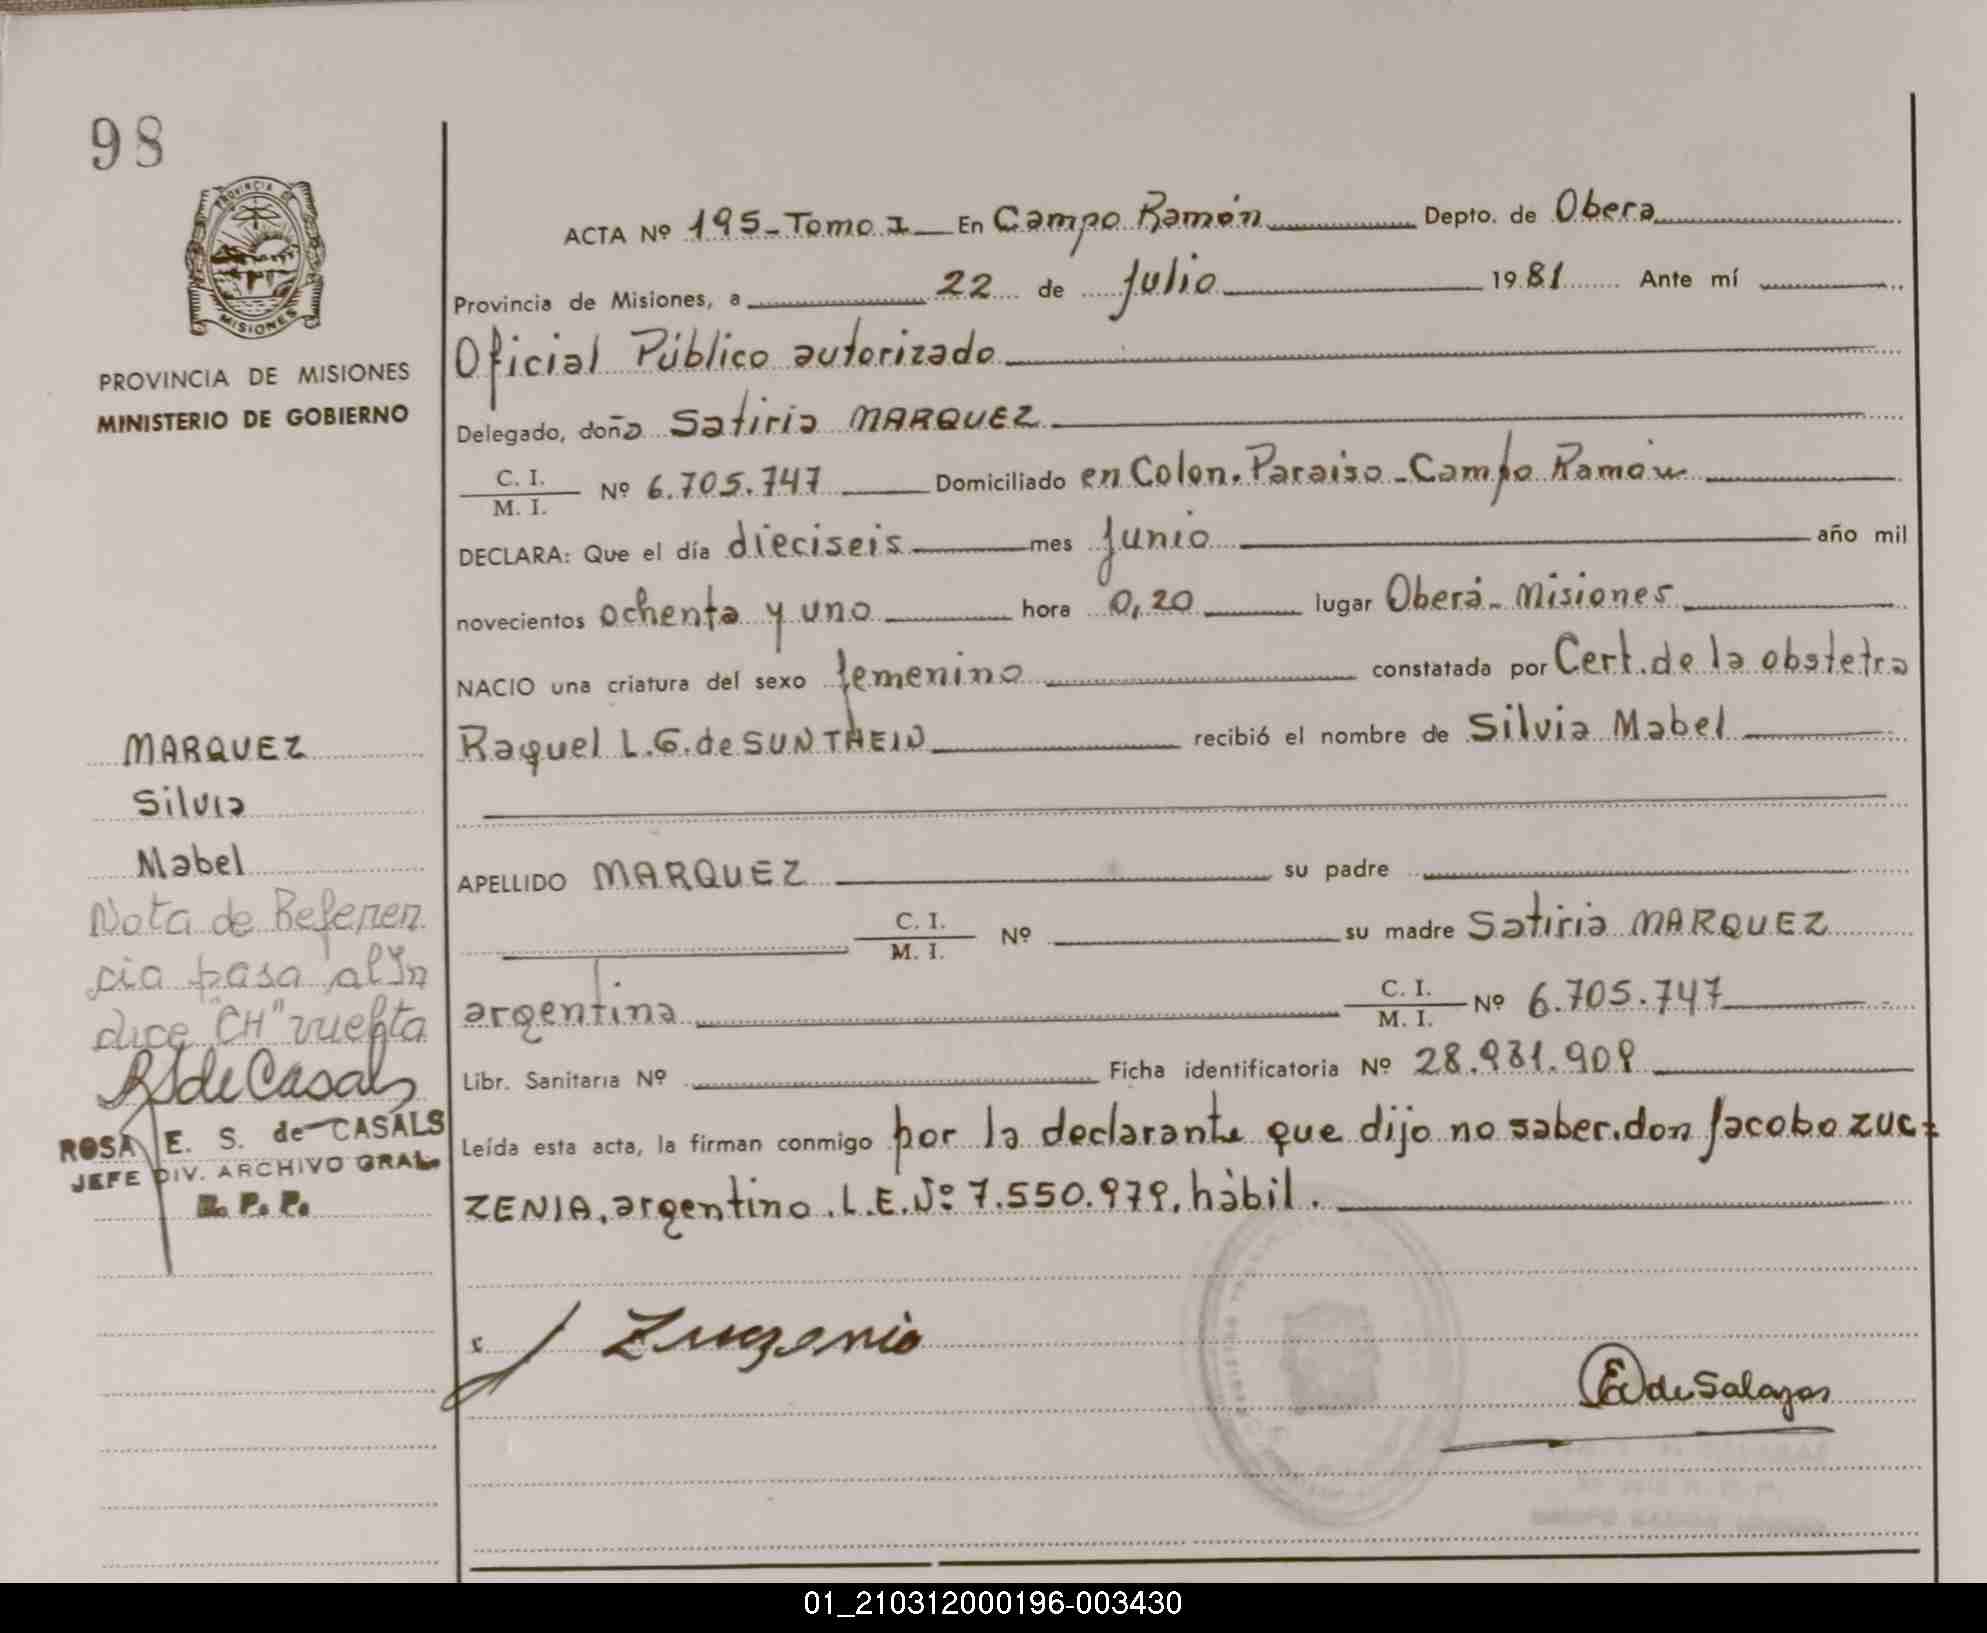 98
PROVINCIA DE
MISIONES
PROVINCIA DE MISIONES
MINISTERIO DE GOBIERNO
ACTA Nº 195-Tomo I En Campo Ramón Depto. de Obera
Provincia de Misiones, a 22 de Julio 1981 Ante mí
Oficial Público autorizado
Delegado, doña Satiria MARQUEZ
C. I.
M. I. Nº 6.705.747 Domiciliado en Colon. Paraiso - Campo Ramón
DECLARA: Que el día dieciseis mes Junio año mil
novecientos ochenta y uno hora 0,20 lugar Oberá - Misiones
NACIO una criatura del sexo femenino constatada por Cert. de la obstetra
Raquel L.G. de SUNTHEIN recibió el nombre de Silvia Mabel
APELLIDO MARQUEZ su padre
C. I.
M. I. Nº su madre Satiria MARQUEZ
argentina C. I.
M. I. Nº 6.705.747
Libr. Sanitaria Nº Ficha identificatoria Nº 28.931.909
Leída esta acta, la firman conmigo por la declarante que dijo no saber. don Jacobo ZUC-
ZENIA, argentino. L.E.Nº 7.550.979, hábil.
MARQUEZ
Silvia
Mabel
Nota de Referen
cia pasa al In
dice "CH" vuelta
R S de Casals
ROSA E. S. de CASALS
JEFE DIV. ARCHIVO GRAL.
R. P. P.
J Zuczenia
E de Salazar
01_210312000196-003430